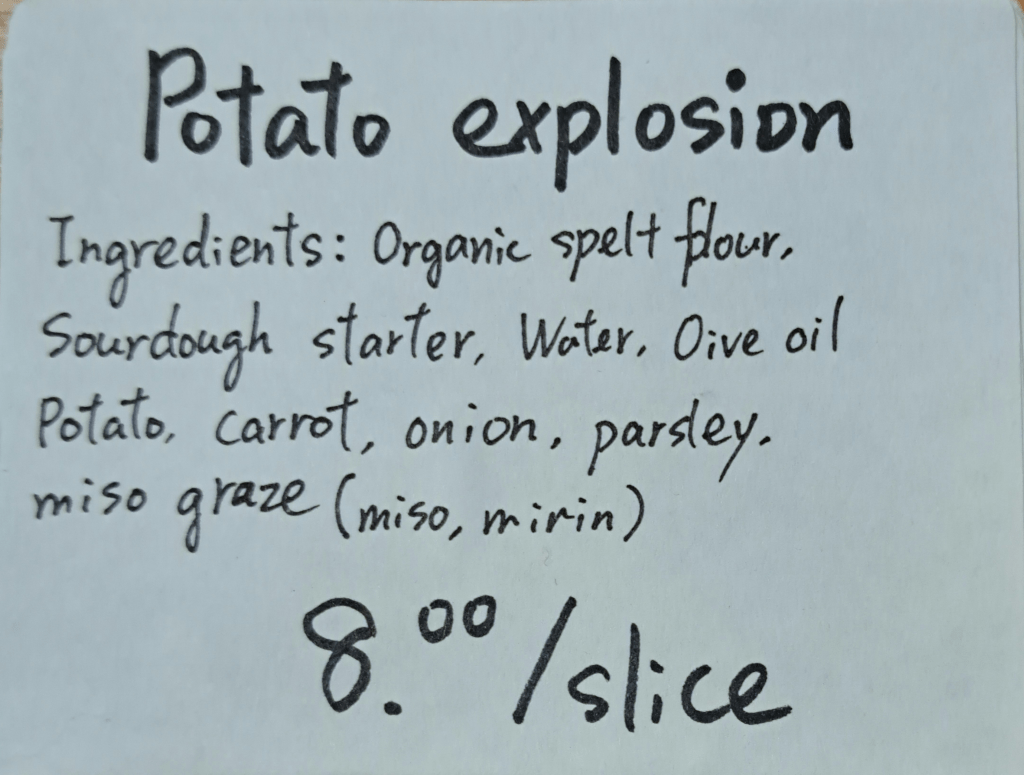 Potato explosion
Ingredients: Organic spelt flour,
Sourdough starter, Water, Oive oil
Potato, carrot, onion, parsley.
miso graze (miso, mirin)
8.00/slice